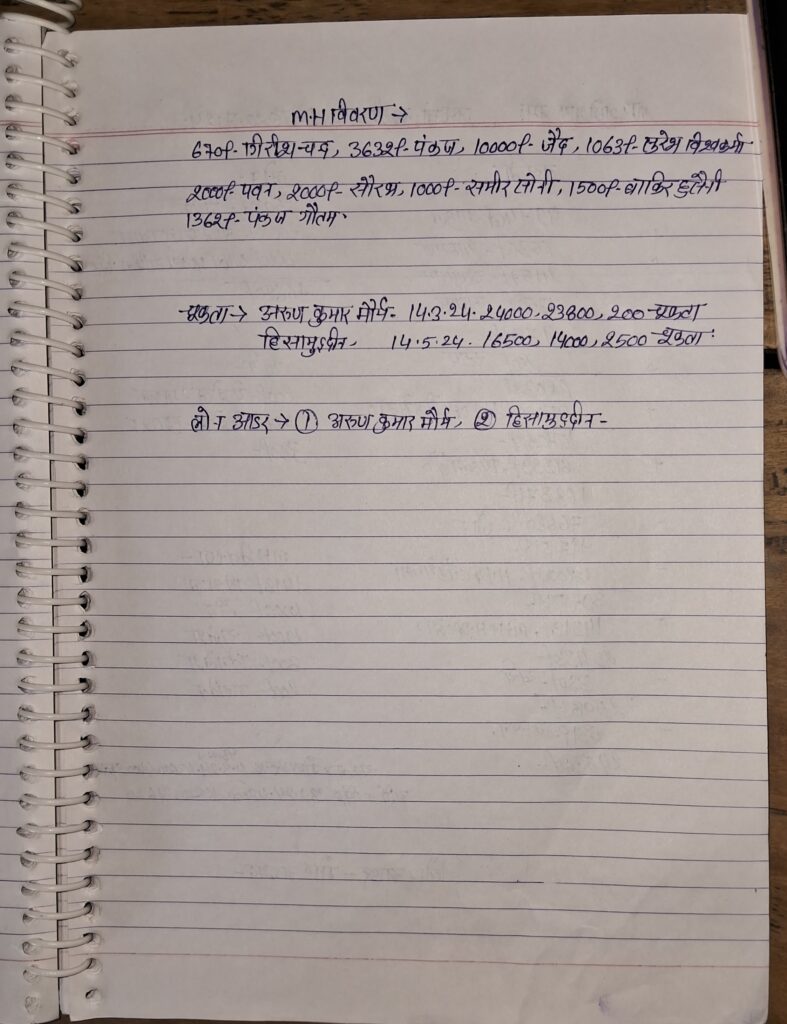 M.H विवरण →
670/- गिरीश चन्द, 3632/- पंकज, 10000/- जैद, 1063/- सुरेश विश्वकर्मा
2000/- पवन, 2000/- सौरभ, 1000/- समीर सोनी, 1500/- बाकिर हुसैनी
1362/- पंकज गौतम.
चुकता → अरुण कुमार मौर्य- 14.3.24. 24000, 23800, 200 चुकता
हिसामुद्दीन, 14.5.24. 16500, 14000, 2500 चुकता.
लोन आडर → ① अरुण कुमार मौर्य, ② हिसामुद्दीन-